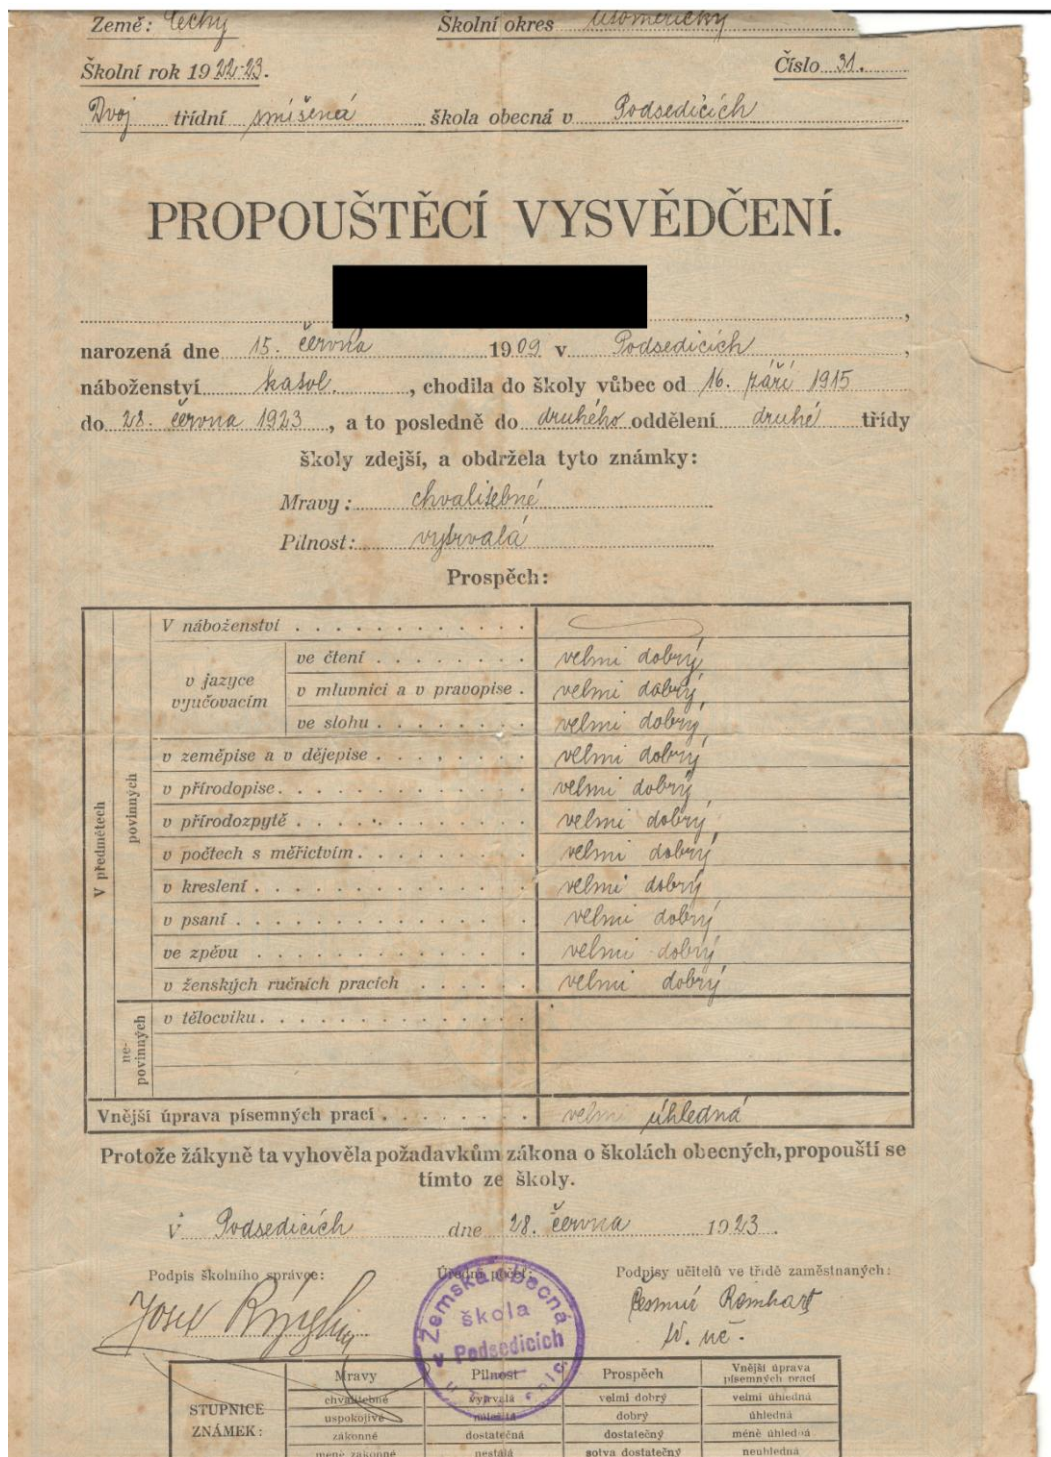 Země: Čechy Školní okres litoměřický
Školní rok 1922-23. Číslo 31.
Dvoj třídní smíšená škola obecná v Podsedicích
PROPOUŠTĚCÍ VYSVĚDČENÍ.
narozená dne 15. června 1909 v Podsedicích,
náboženství katol., chodila do školy vůbec od 16. září 1915
do 28. června 1923, a to posledně do druhého oddělení druhé třídy
školy zdejší, a obdržela tyto známky:
Mravy: chvalitebné
Pilnost: vytrvalá
Prospěch:
V předmětech
povinných
V náboženství
v jazyce vyučovacím
ve čtení velmi dobrý
v mluvnici a v pravopise velmi dobrý
ve slohu velmi dobrý
v zeměpise a v dějepise velmi dobrý
v přírodopise velmi dobrý
v přírodozpytě velmi dobrý
v počtech s měřictvím velmi dobrý
v kreslení velmi dobrý
v psaní velmi dobrý
ve zpěvu velmi dobrý
v ženských ručních pracích velmi dobrý
nepovinných
v tělocviku
Vnější úprava písemných prací velmi úhledná
Protože žákyně ta vyhověla požadavkům zákona o školách obecných, propouští se
tímto ze školy.
V Podsedicích dne 28. června 1923.
Podpis školního správce: Úřední pečeť: Podpisy učitelů ve třídě zaměstnaných:
Josef
Zemská obecná
škola
v Podsedicích
STUPNICE
ZNÁMEK:
Mravy Pilnost Prospěch Vnější úprava písemných prací
chvalitebné vytrvalá velmi dobrý velmi úhledná
uspokojivé náležitá dobrý úhledná
zákonné dostatečná dostatečný méně úhledná
méně zákonné nestálá sotva dostatečný neúhledná